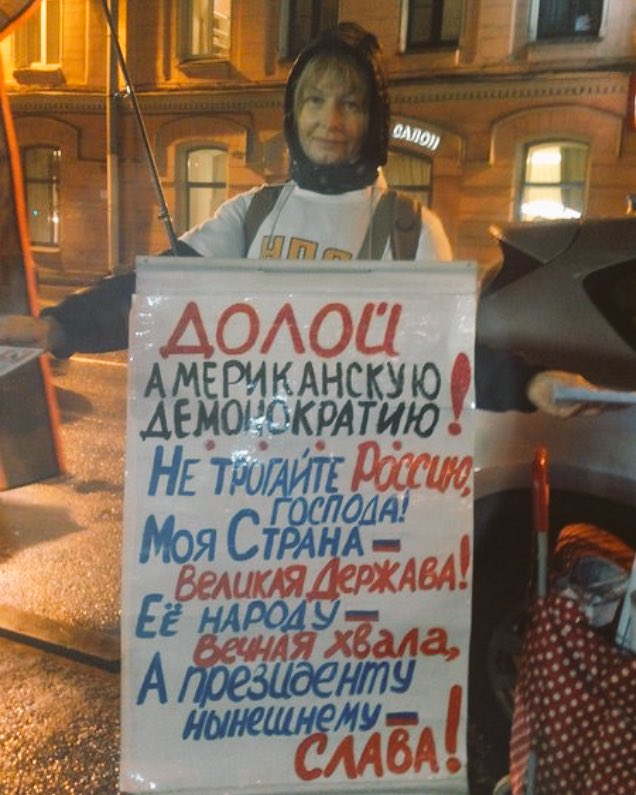 САЛОН
ДОЛОЙ
АМЕРИКАНСКУЮ
ДЕМОНОКРАТИЮ!
НЕ ТРОГАЙТЕ РОССИЮ,
ГОСПОДА!
МОЯ СТРАНА –
ВЕЛИКАЯ ДЕРЖАВА!
ЕЁ НАРОДУ –
ВЕЧНАЯ ХВАЛА,
А ПРЕЗИДЕНТУ
НЫНЕШНЕМУ –
СЛАВА!